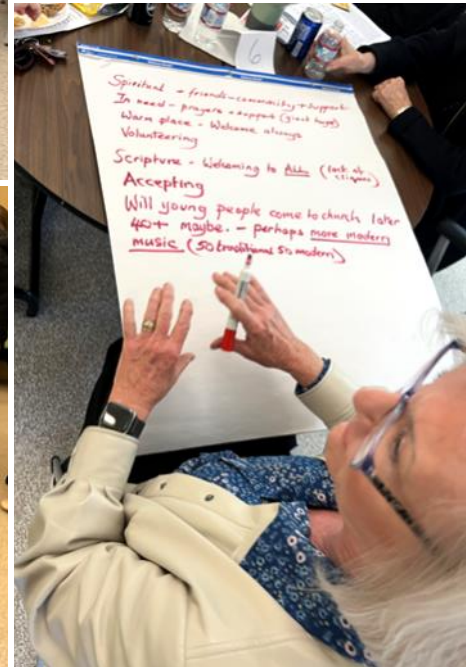 6
Spiritual - friends - community + support
In need - prayers + support (giant hugs)
Warm place - Welcome always
Volunteering
Scripture - Welcoming to ALL (lack of cliques)
Accepting
Will young people come to church later
40+ maybe. - perhaps more modern
music (50 traditional 50 modern)